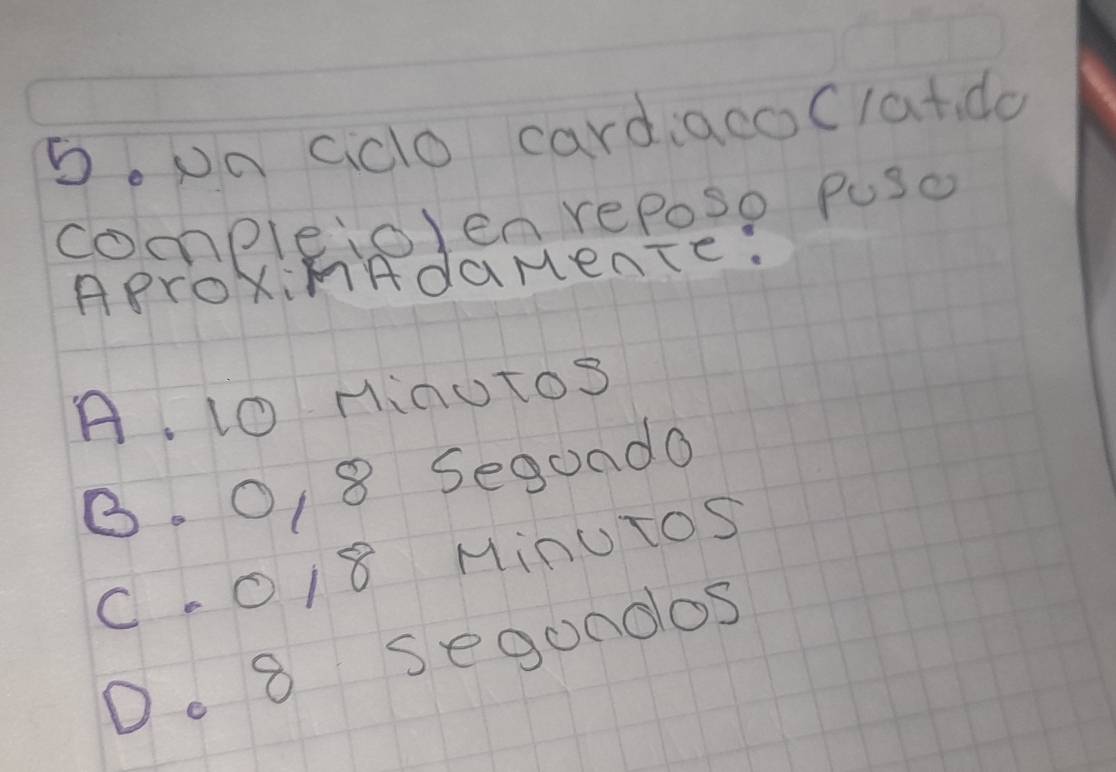 5. un ciclo cardiaco (latido
compleio) en reposo puso
AproximAdaMente:
A. 10 Minutos
B. 0,8 Segundo
C. 0,8 Minutos
D. 8 segundos